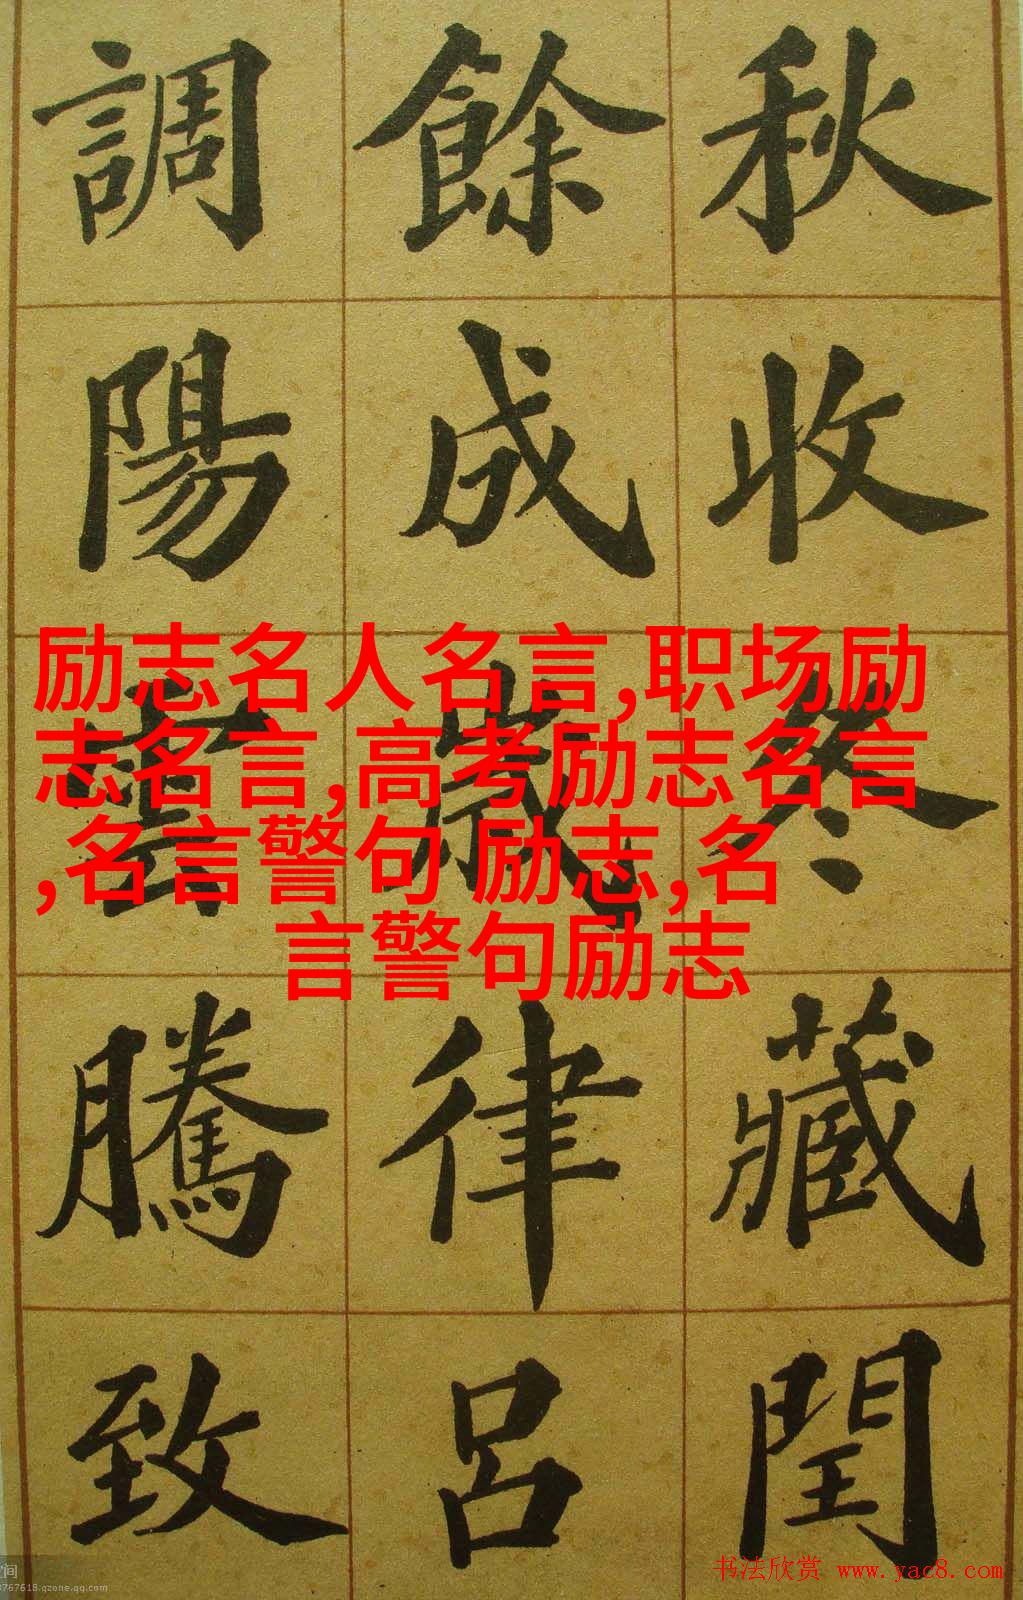 秋收冬藏閏
餘成歲律呂
調陽雲騰致
励志名人名言,职场励
志名言,高考励志名言
,名言警句 励志,名
言警句励志
书法欣赏 www.yac8.com
767618.qzone.qq.com